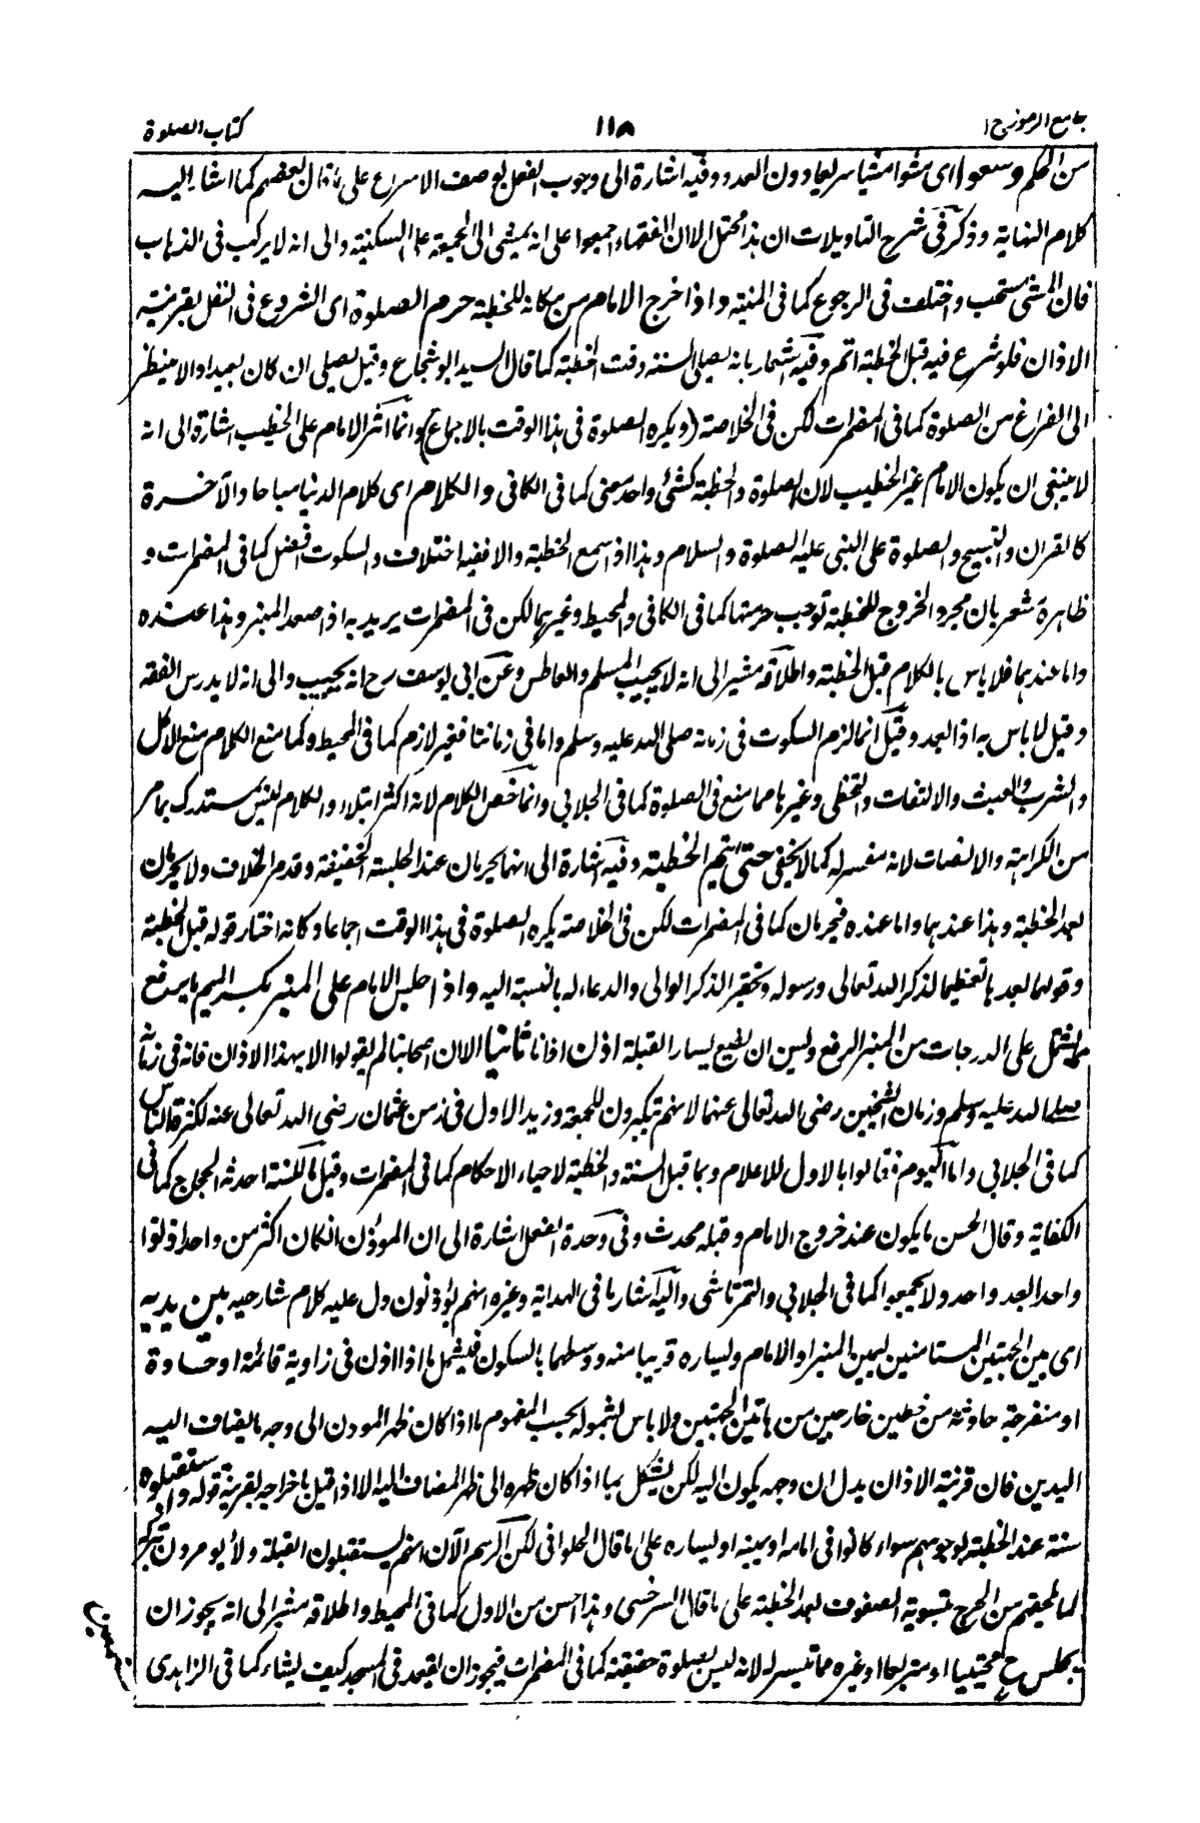 جامع الرموز ج ١
١١٨
كتاب الصلوة
من الحكم وسعوا اى مشوا مشيا سريعا دون العدو وفيه اشارة الى وجوب الفعل بوصف الاسراع على ما قال بعضهم كما اشار اليه
كلام النهاية وذكر فى شرح التاويلات ان هذا محتمل الا ان الفقهاء اجمعوا على انه يمشى الى الجمعة على السكينة والى انه لا يركب فى الذهاب
فان المشى مستحب واختلف فى الرجوع كما فى المنية واذا خرج الامام من مكانه للخطبة حرم الصلوة اى الشروع فى النفل بقرينة
الاذان فلو شرع فيه قبل الخطبة اتم وفيه اشعار بانه يصلى السنة وقت الخطبة كما قال السيد ابو شجاع وقيل يصلى ان كان بعيدا والا ينتظر
الى الفراغ من الصلوة كما فى المضمرات لكن فى الخلاصة (ويكره الصلوة فى هذا الوقت بالاجماع) وانما آثر الامام على الخطيب اشارة الى انه
لا ينبغى ان يكون الامام غير الخطيب لان الصلوة والخطبة كشئ واحد معنى كما فى الكافى والكلام اى كلام الدنيا مباحا والآخرة
كالقران والتسبيح والصلوة على النبى عليه الصلوة والسلام وهذا اذا سمع الخطبة والا ففيه اختلاف والسكوت افضل كما فى المضمرات و
ظاهره مشعر بان مجرد الخروج للخطبة توجب حرمتها كما فى الكافى والمحيط وغيرهما لكن فى المضمرات يريد به اذا صعد المنبر وهذا عنده
واما عندهما فلا باس بالكلام قبل الخطبة واطلاقه مشير الى انه لا يجيب المسلم والعاطس وعن ابى يوسف رح انه يجيب والى انه لا يدرس الفقه
وقيل لا باس به اذا بعد وقيل انما لزم السكوت فى زمانه صلى الله عليه وسلم واما فى زماننا فغير لازم كما فى المحيط وكما منع الكلام منع الاكل
والشرب والعبث والالتفات والتخطى وغيرها مما منع فى الصلوة كما فى الجلابى وانما خص الكلام لانه اكثر ابتلاء والكلام ليس بمستدرك بما مر
من الكراهة والانصات لانه مفسر له كما لا يخفى حتى يتم الخطبة وفيه اشارة الى انهما يحرمان عند الجلسة الخفيفة وقد مر الخلاف ولا يحرمان
بعد الخطبة وهذا عندهما واما عنده فيحرمان كما فى المضمرات لكن فى الخلاصة يكره الصلوة فى هذا الوقت اجماعا وكانه اختار قوله قبل الخطبة
وقولهما بعدها تعظيما لذكر الله تعالى ورسوله وتحقير الذكر الوالى والدعاء له بالنسبة اليه واذا جلس الامام على المنبر بكسر الميم ما يرفع
المشتمل على الدرجات من المنبر الرفع وليس ان يضع يسار القبلة اذن اذانا ثانيا الا ان اصحابنا لم يقولوا الا بهذا الاذان فانه فى زمانه
صلى الله عليه وسلم وزمان الشيخين رضى الله تعالى عنهما لانهم يبكرون للجمعة وزيد الاول فى زمن عثمان رضى الله تعالى عنه لكثرة الناس
كما فى الجلابى واما اليوم فقالوا بالاول للاعلام وبما قبل السنة والخطبة لاحياء الاحكام كما فى المضمرات وقيل ما للسنة احدثه الحجاج كما فى
الكفاية وقال الحسن ما يكون عند خروج الامام وقبله محدث وفى وحدة الفعل اشارة الى ان الموذن ان كان اكثر من واحد اذنوا
واحدا بعد واحد ولا يجمعوا كما فى الجلابى والتمرتاشى واليه اشار ما فى الهداية وغيره انهم يؤذنون دل عليه كلام شارحيه بين يديه
اى بين الجهتين المسامتتين ليمين المنبر او الامام ويساره قريبا منه ووسطهما بالسكون فيشمل ما اذا اذن فى زاوية قائمة او حادة
او منفرجة حادثة من خطين خارجين من هاتين الجهتين ولا باس لشموله بحسب المفهوم ما اذا كان ظهر الموذن الى وجه ما يضاف اليه
اليدين فان قرينة الاذان يدل ان وجهه يكون اليه لكن يشكل بما اذا كان ظهره الى ظهر المضاف اليه الا اذا قيل باخراجه بقرينة قوله واستقبلوه
سنة عند الخطبة بوجوههم سواء كانوا فى امامه او يمينه او يساره على ما قال الحلوانى لكن الرسم الآن انهم يستقبلون القبلة ولا يومرون بتركه
لما يلحقهم من الحرج بتسوية الصفوف بعد الخطبة على ما قال السرخسى وهذا احسن من الاول كما فى المحيط واطلاقه مشير الى انه يجوز ان
يجلس ح محتبيا او متربعا او غيره مما تيسر له لانه ليس بصلوة حقيقة كما فى المضمرات فيجوز ان يقعد فى المسجد كيف يشاء كما فى الزاهدى